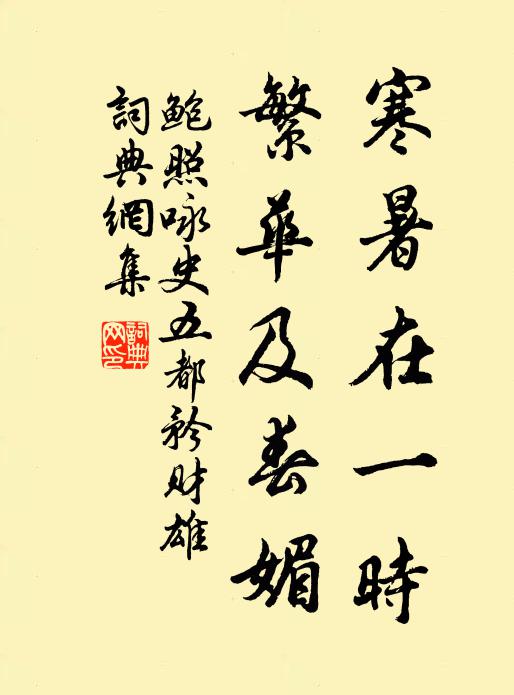 寒暑在一時
繁華及春媚
鮑照咏史五都矜財雄
詞典網集
詞典網印